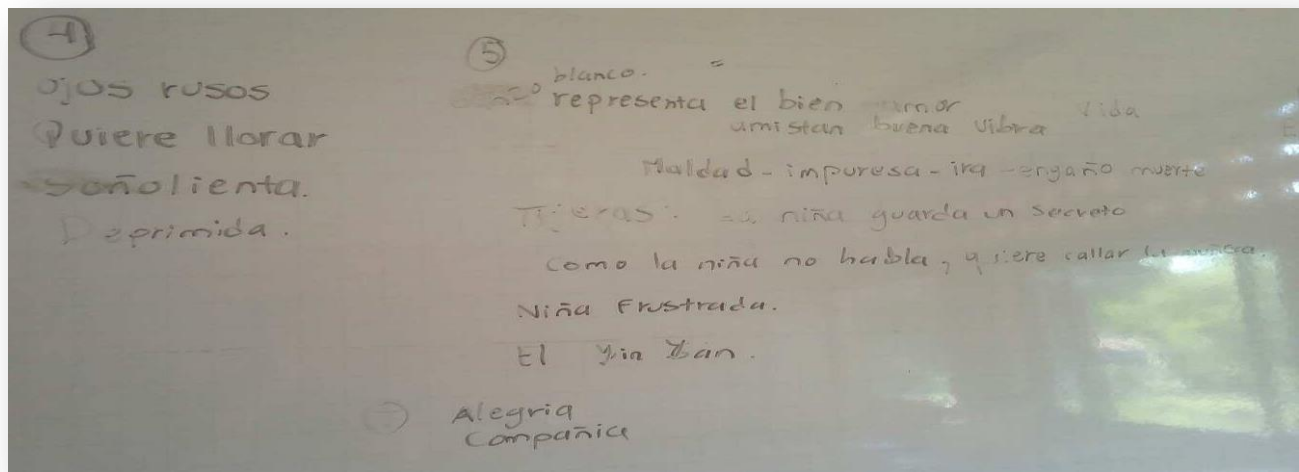 4
ojos rusos
Quiere llorar
soñolienta.
Deprimida.
5
blanco. =
representa el bien amor vida
umistan buena vibra
Maldad - impuresa - ira - engaño muerte
Tijeras: la niña guarda un secreto
como la niña no habla, quiere callar la muñeca.
Niña Frustrada.
El yin Yan.
Alegria
Compañia